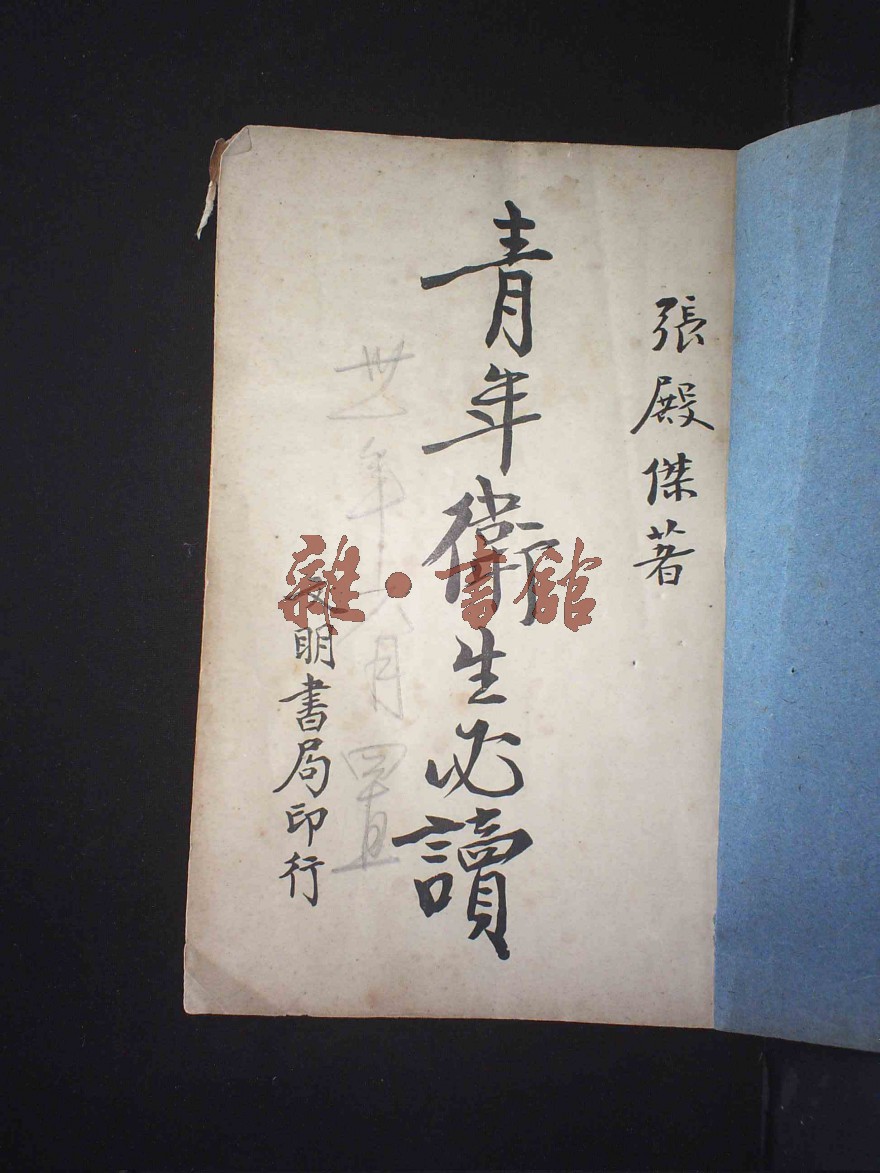 張殿傑著
青年衛生必讀
卅一年六月置
文明書局印行
雜·書館